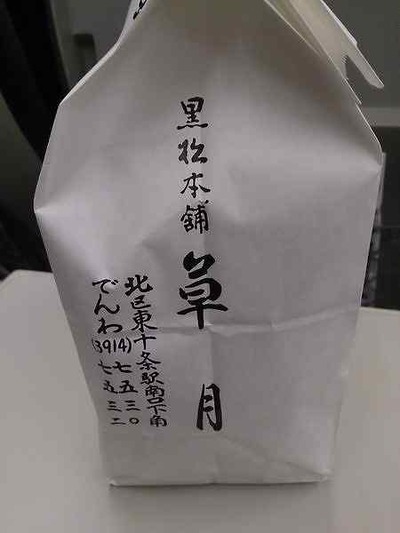 黒松本舗
草月
北区東十条駅南口下角
でんわ(3914)七五三〇
七五三二